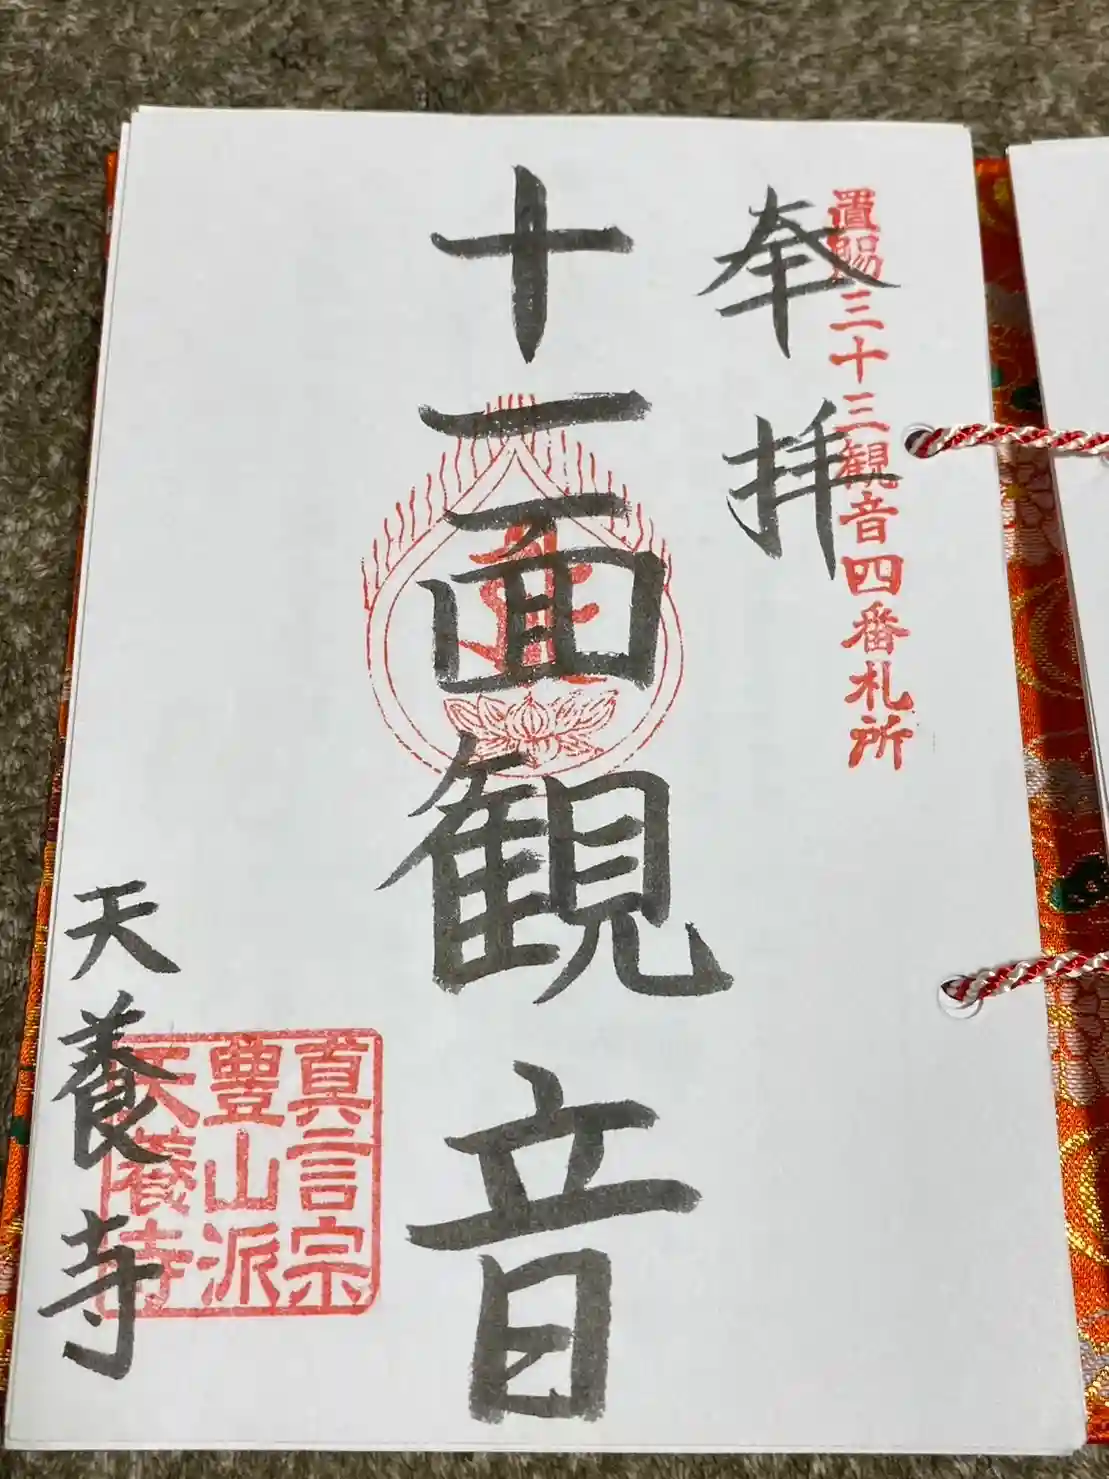 置賜三十三観音四番札所
奉拝
十一面観音
真言宗
豊山派
天養寺
天養寺